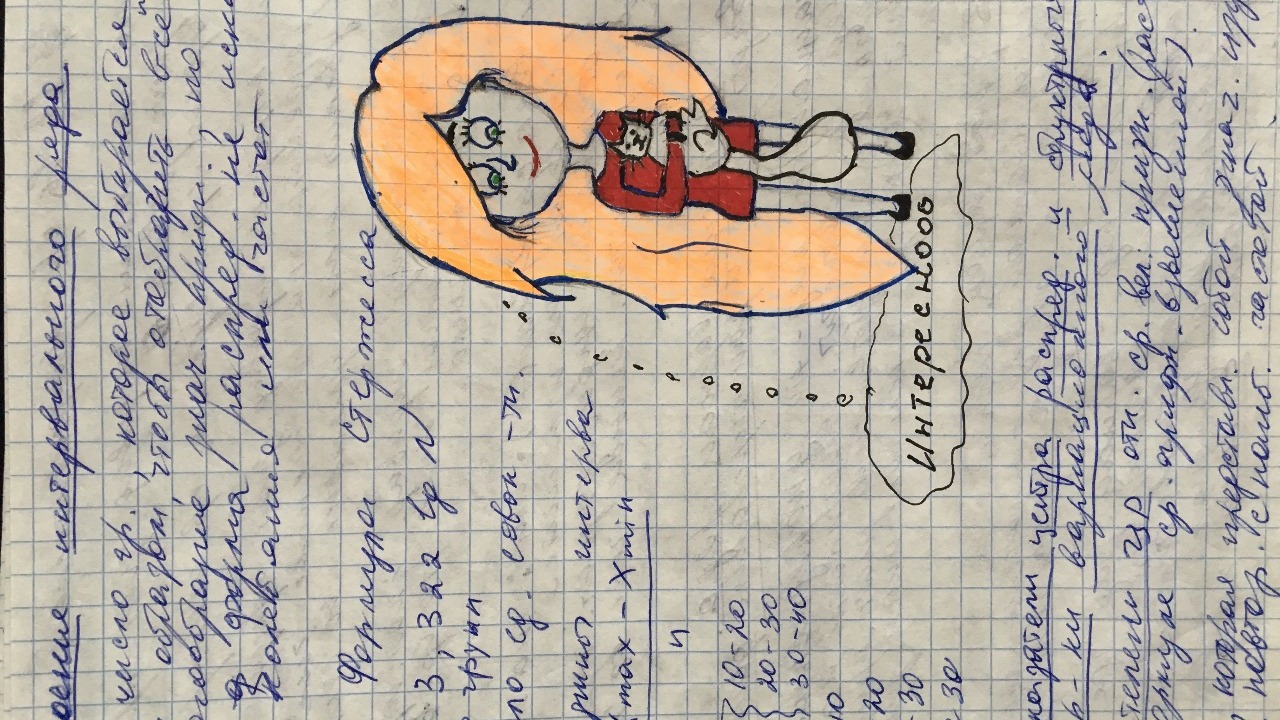 оение интервального ряда
число гр. которое выбирается
образом, чтобы отобразить все
нообразие знач. признi по
форма распред. не иска
колебания или частот
Формула Стержесса
3,322 lg N
групп
ло ед. совок-ти.
интерва
xmax - xmin
n
10-20
20-30
30-40
10
20
-30
30
Интересно об
казатели центра распред. и структурные
р-ки вариационного ряда.
ЦР отн. ср. вел. призн. (рас
ср. арифм. взвешенной)
которая представл. собой знач.
повтор. (с наиб. частотой